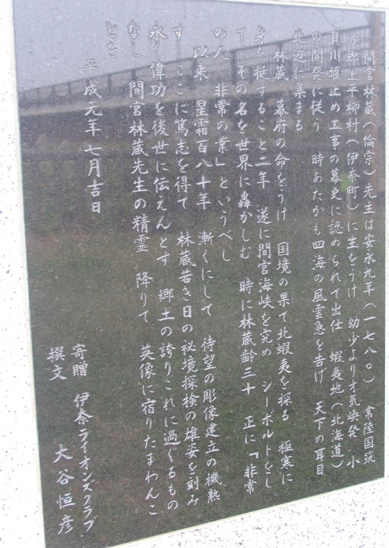 間宮林蔵(倫宗)先生は安永九年(一七八〇) 常陸国筑
波郷上平柳村(伊奈町)に生をうけ 幼少より才気煥発 小
貝川堰止め工事の幕吏に認められて出仕 蝦夷地(北海道)
の開発に従う 時あたかも四海の風雲急を告げ 天下の耳目
北辺に集まる
林蔵 幕府の命をうけ 国境の果て北蝦夷を探る 極寒に
身を挺すること二年 遂に間宮海峡を究め シーボルトをし
て その名を世界に轟かしむ 時に林蔵齢三十 正に「非常
の人 非常の業」というべし
以来 星霜百八十年 漸くにして 待望の彫像建立の機熟
す ここに篤志を得て 林蔵若き日の秘境探検の雄姿を刻み
永く偉功を後世に伝えんとす 郷土の誇りこれに過ぐるもの
なし 間宮林蔵先生の精霊 降りて 英像に宿りたまわんこ
とを
平成元年七月吉日
寄贈 伊奈ライオンズクラブ
撰文 大谷恒彦